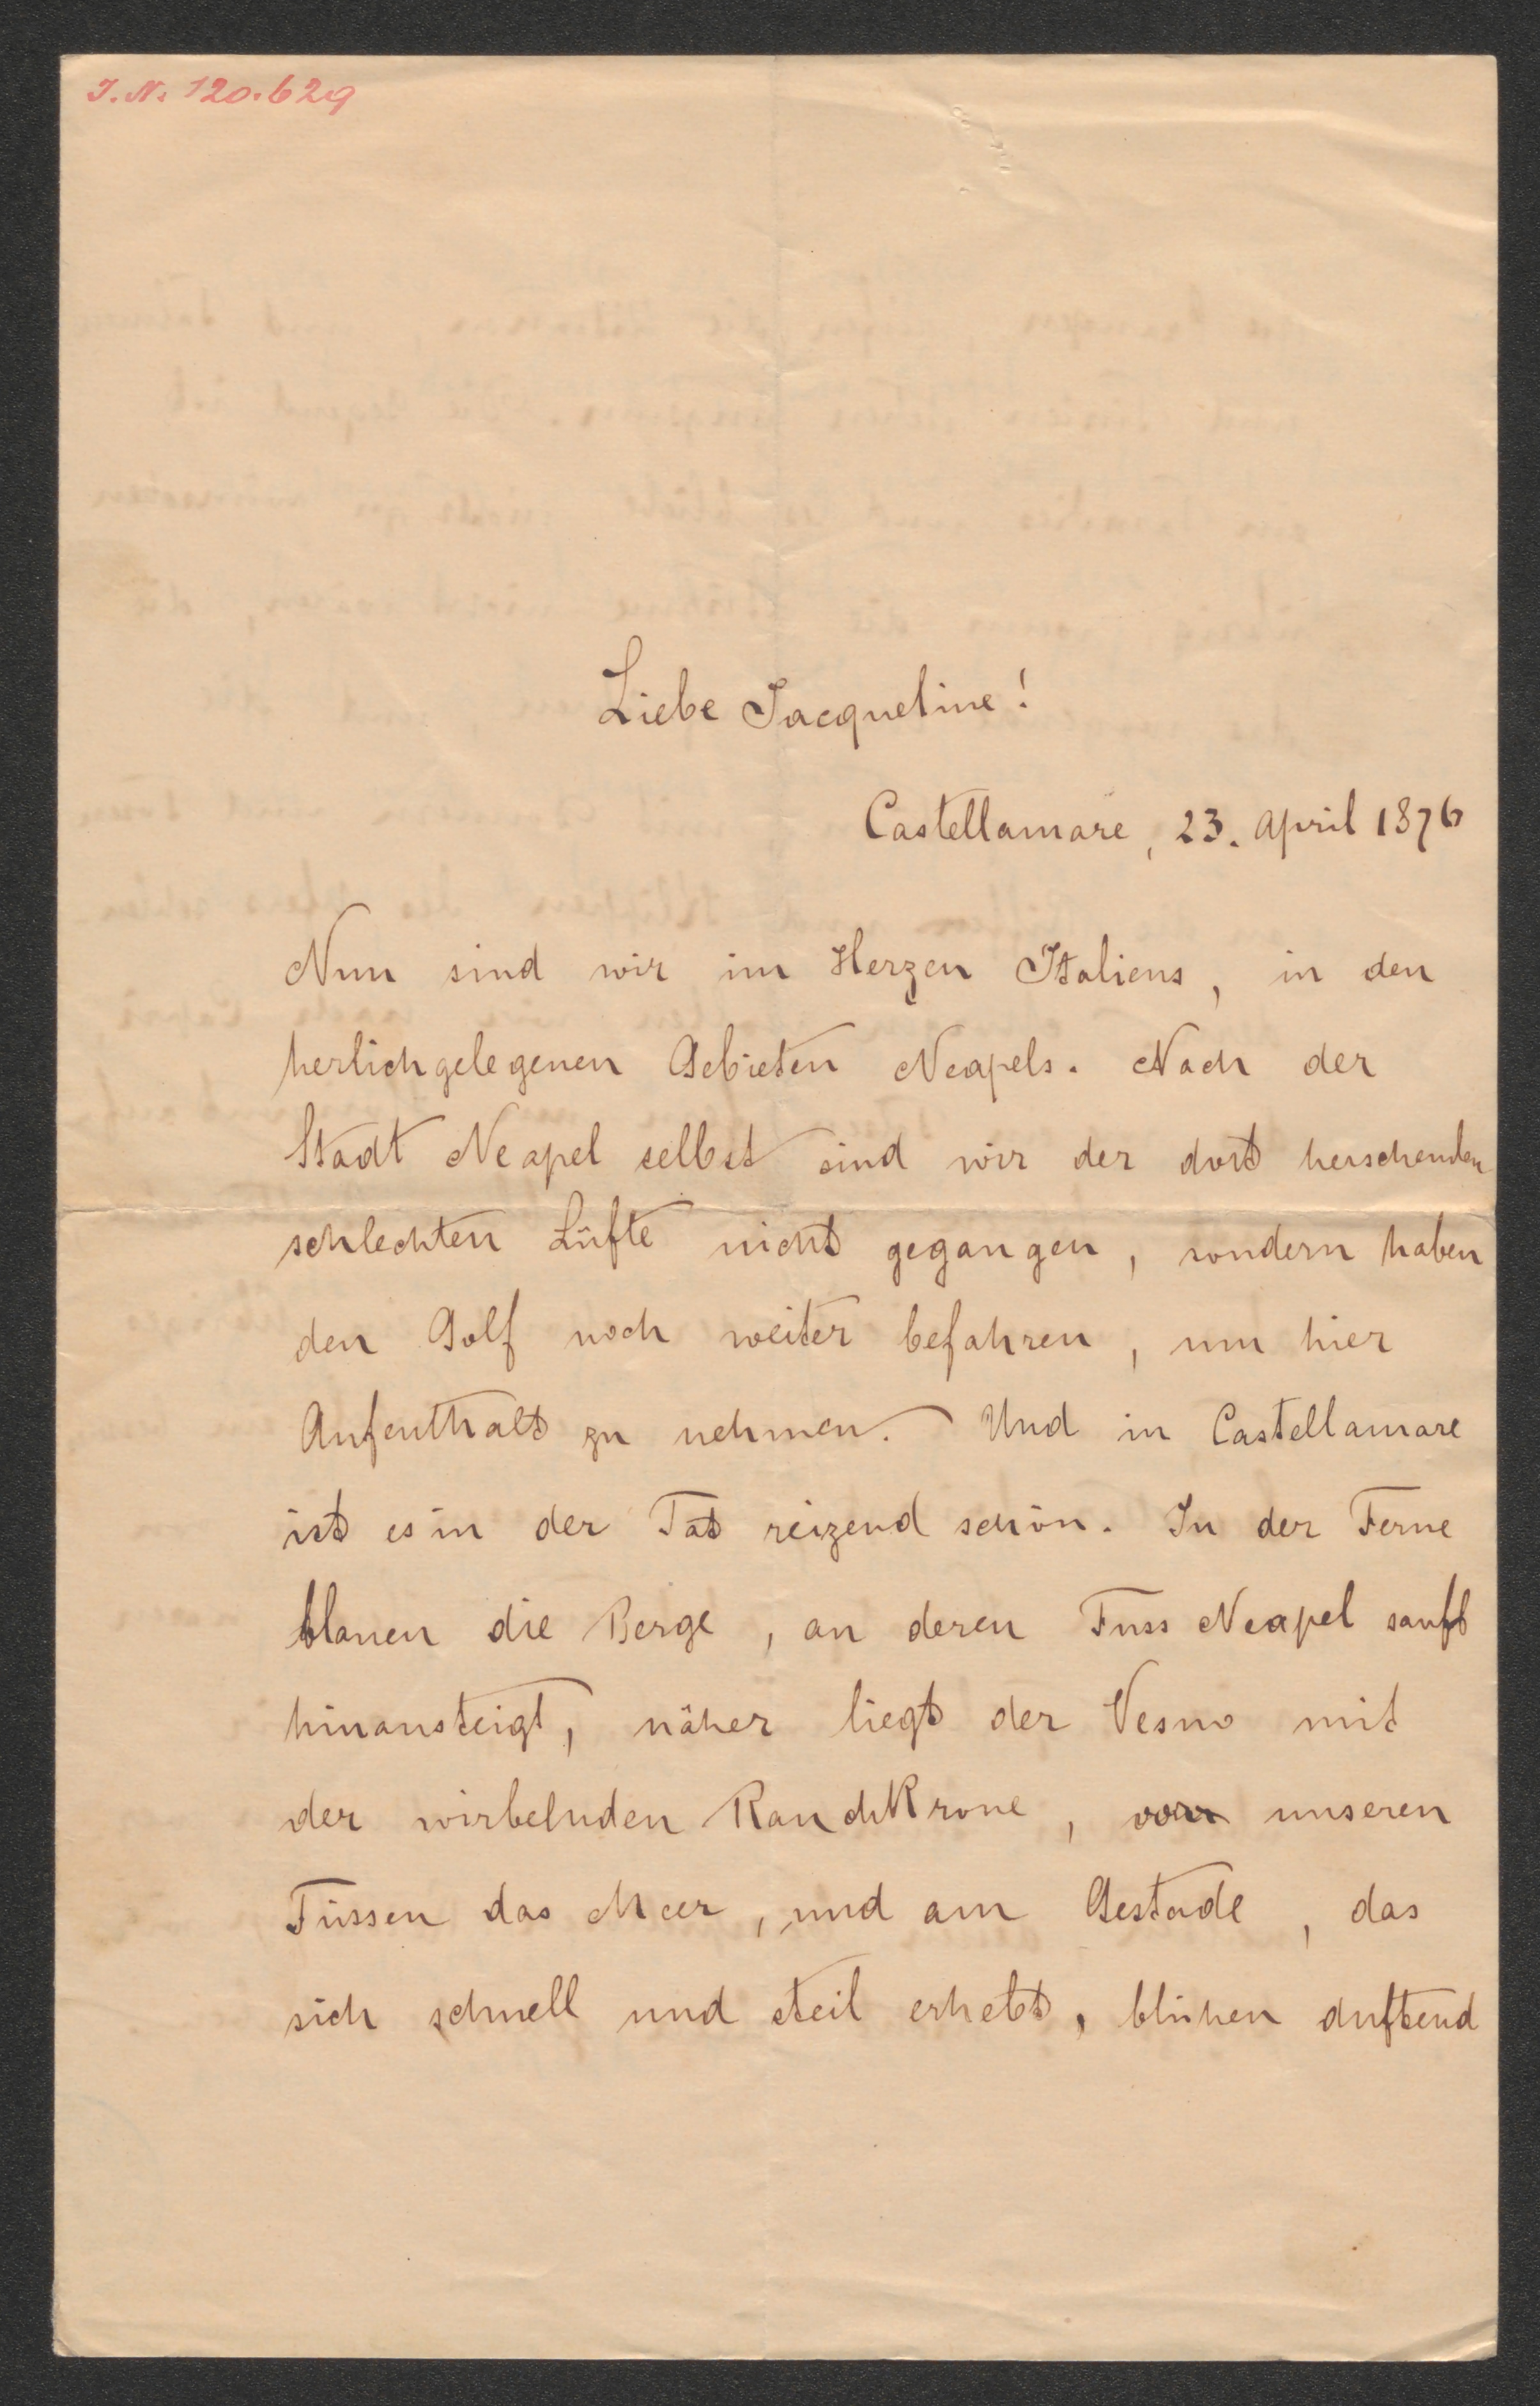 I.N. 120.629
Liebe Jacqueline!
Castellamare, 23. April 1876
Nun sind wir im Herzen Italiens, in den
herlichgelegenen Gebieten Neapels. Nach der
Stadt Neapel selbst sind wir der dort herschenden
schlechten Lüfte nicht gegangen, sondern haben
den Golf noch weiter befahren, um hier
Aufenthalt zu nehmen. Und in Castellamare
ist es in der Tat reizend schön. In der Ferne
blauen die Berge, an deren Fuss Neapel sanft
hinansteigt, näher liegt der Vesuv mit
der wirbelnden Rauchkrone, vor unseren
Füssen das Meer, und am Gestade, das
sich schnell und steil erhebt, blühen duftend